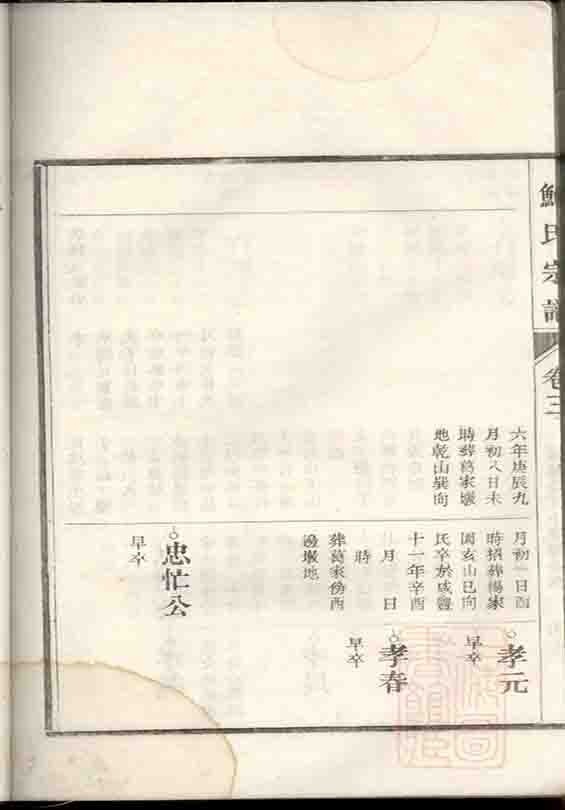 氏宗譜
卷三
六年庚辰九
月初八日未
時葬葛家壋
地乾山巽向
月初一日酉
時招葬楊家
園玄山巳向
氏卒於咸豐
十一年辛酉
月 日
時
葬葛家傍西
邊墩地
忠恾公
早卒
孝元
早卒
孝春
早卒